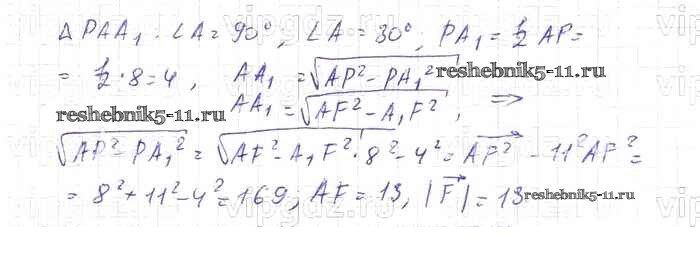 Δ PAA₁. ∠A = 90°, ∠A = 30°, PA₁ = ½ AP =
= ½·8 = 4, AA₁ = √AP² − PA₁² reshebnik5-11.ru
reshebnik5-11.ru AA₁ = √AF² − A₁F², ⇒
√AP² − PA₁² = √AF² − A₁F² · 8² − 4² = AF² − 11² AF² =
= 8² + 11² − 4² = 169; AF = 13, |F⃗| = 13 reshebnik5-11.ru
vipgdz.ru